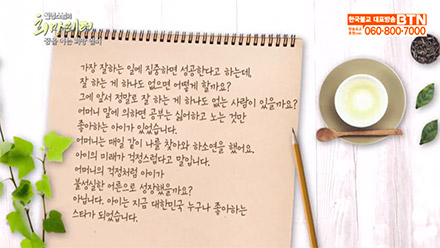 희망편지
한국불교 대표방송 BTN
060-800-7000
가장 잘하는 일에 집중하면 성공한다고 하는데,
잘 하는 게 하나도 없으면 어떻게 할까요?
그에 앞서 정말로 잘 하는 게 하나도 없는 사람이 있을까요?
어머니 말에 의하면 공부는 싫어하고 노는 것만
좋아하는 아이가 있었습니다.
어머니는 매일 같이 나를 찾아와 하소연을 했어요.
아이의 미래가 걱정스럽다고 말입니다.
어머니의 걱정처럼 아이가
불성실한 어른으로 성장했을까요?
아닙니다. 아이는 지금 대한민국 누구나 좋아하는
스타가 되었습니다.